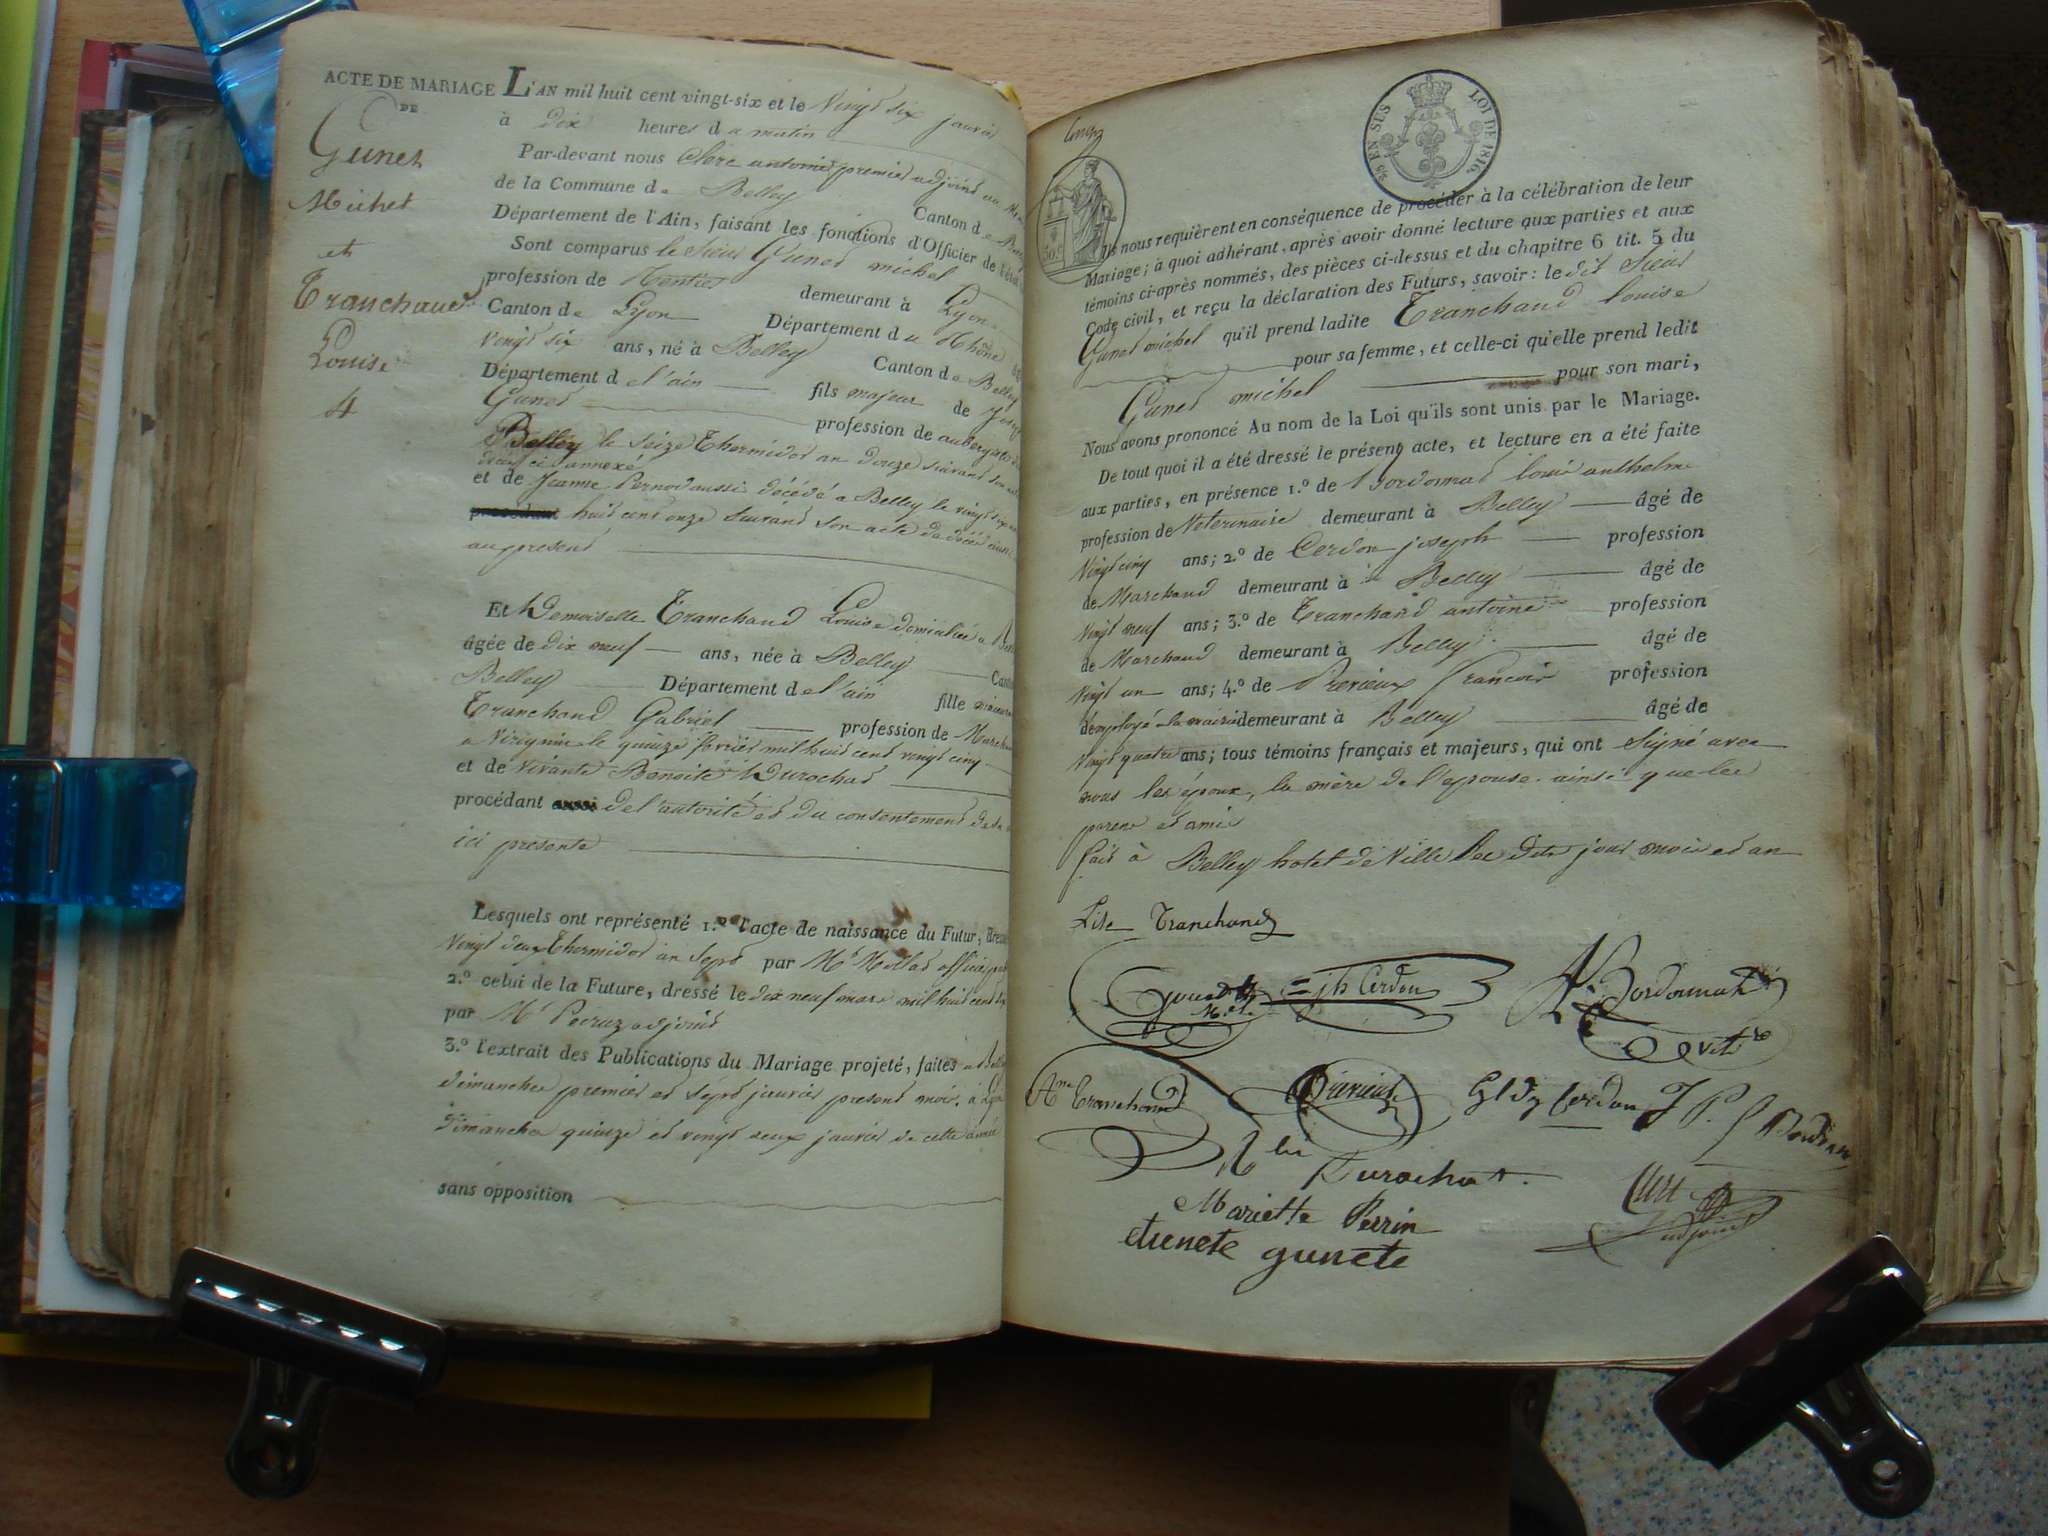 ACTE DE MARIAGE
DE
Gunet
Michel
et
Tranchand
Louise
4
L'AN mil huit cent vingt-six et le Vingt six janvier
à Dix heures du matin
Par-devant nous antoine premier adjoint au
de la Commune de Belley Canton de
Département de l'Ain, faisant les fonctions d'Officier de l'état
Sont comparus le Sieur Gunet michel
profession de Rentier demeurant à Lyon
Canton de Lyon Département du Rhône
Vingt six ans, né à Belley Canton de Belley
Département de l'ain fils majeur de
Gunet profession de aubergiste
Belley le seize Thermidor an douze suivant son
décès ci annexé
et de Jeanne Pernod aussi décédé a Belley le vingt
huit cent onze suivant son acte de décès
au présent
Et Demoiselle Tranchand Louise domiciliée a
âgée de dix neuf ans, née à Belley
Belley Département de l'ain fille mineure
Tranchand Gabriel profession de
a Virignin le quinze février mil huit cent vingt cinq
et de vivante Benoite Durochat
procédant de l'autorité et du consentement de sa
ici presente
Lesquels ont représenté 1.º l'acte de naissance du Futur,
Vingt deux Thermidor an Sept par Mr
2.º celui de la Future, dressé le dix neuf mars mil huit cent
par Mr adjoint
3.º l'extrait des Publications du Mariage projeté, faites a
dimanches premier et sept janvier present mois, à
dimanches quinze et vingt deux janvier de cette année
sans opposition
LOI DE 1816.
Ils nous requièrent en conséquence de procéder à la célébration de leur
Mariage; à quoi adhérant, après avoir donné lecture aux parties et aux
témoins ci-après nommés, des pièces ci-dessus et du chapitre 6 tit. 5 du
Code civil, et reçu la déclaration des Futurs, savoir: le dit Sieur
Gunet michel qu'il prend ladite Tranchand louise
pour sa femme, et celle-ci qu'elle prend ledit
Gunet michel pour son mari,
Nous avons prononcé Au nom de la Loi qu'ils sont unis par le Mariage.
De tout quoi il a été dressé le présent acte, et lecture en a été faite
aux parties, en présence 1.º de Bordonnat louis anthelme
profession de Veterinaire demeurant à Belley âgé de
Vingt cinq ans; 2.º de Cerdon joseph profession
de Marchand demeurant à Belley âgé de
Vingt neuf ans; 3.º de Tranchand antoine profession
de Marchand demeurant à Belley âgé de
Vingt un ans; 4.º de Prerieux françois profession
d'employé a la mairie demeurant à Belley âgé de
Vingt quatre ans; tous témoins français et majeurs, qui ont Signé avec
nous les époux, la mère de l'epouse ainsi que les
parens et amis
fait à Belley hotel de Ville les dits jour mois et an
Lise Tranchand
jh Cerdon
Bordonnat
vetre
Ane Tranchand
Prerieux
Cerdon
Durochat
Mariette Perrin
gunete
adjoint